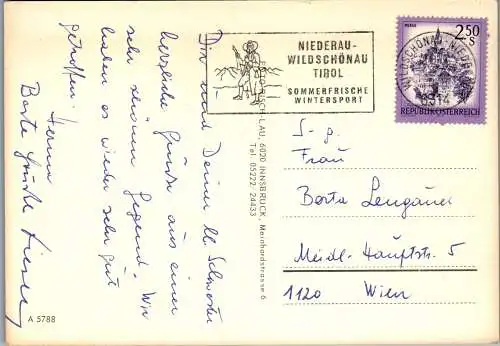 Dir und Deiner lb. Schwester
herzliche Grüße aus einer
sehr schönen Gegend. Wir
haben es wieder sehr gut
getroffen.
Beste Grüße
NIEDERAU-
WILDSCHÖNAU
TIROL
SOMMERFRISCHE
WINTERSPORT
2.50
S
REPUBLIK ÖSTERREICH
6314
6020 INNSBRUCK, Meinhardstrasse 6
Tel. 05222-24433
S. g.
Frau
Berta
Meidl. Hauptstr. 5
1120 Wien
A 5788